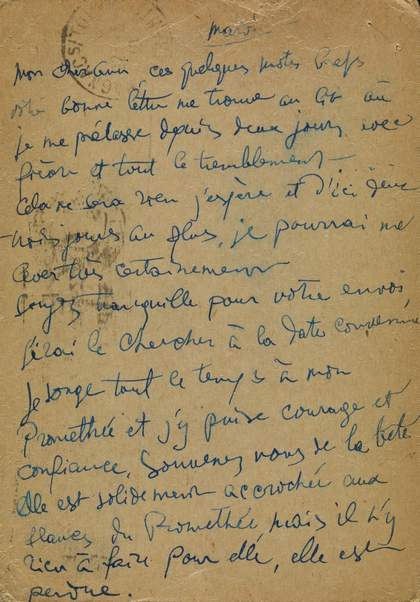 mardi
Mon cher ami ces quelques mots
votre bonne lettre me trouve au lit où
je me prélasse depuis deux jours avec
fièvre et tout le tremblement —
cela ne sera rien j'espère et d'ici deux
trois jours au plus, je pourrai me
lever très certainement
Soyez tranquille pour votre envoi
j'irai le chercher à la date convenue
Je songe tout le temps à mon
Promethée et j'y puise courage et
confiance. Souvenez vous de la bête
Elle est solidement accrochée aux
flancs du Promethée mais il n'y
rien à faire pour elle, elle est
perdue.